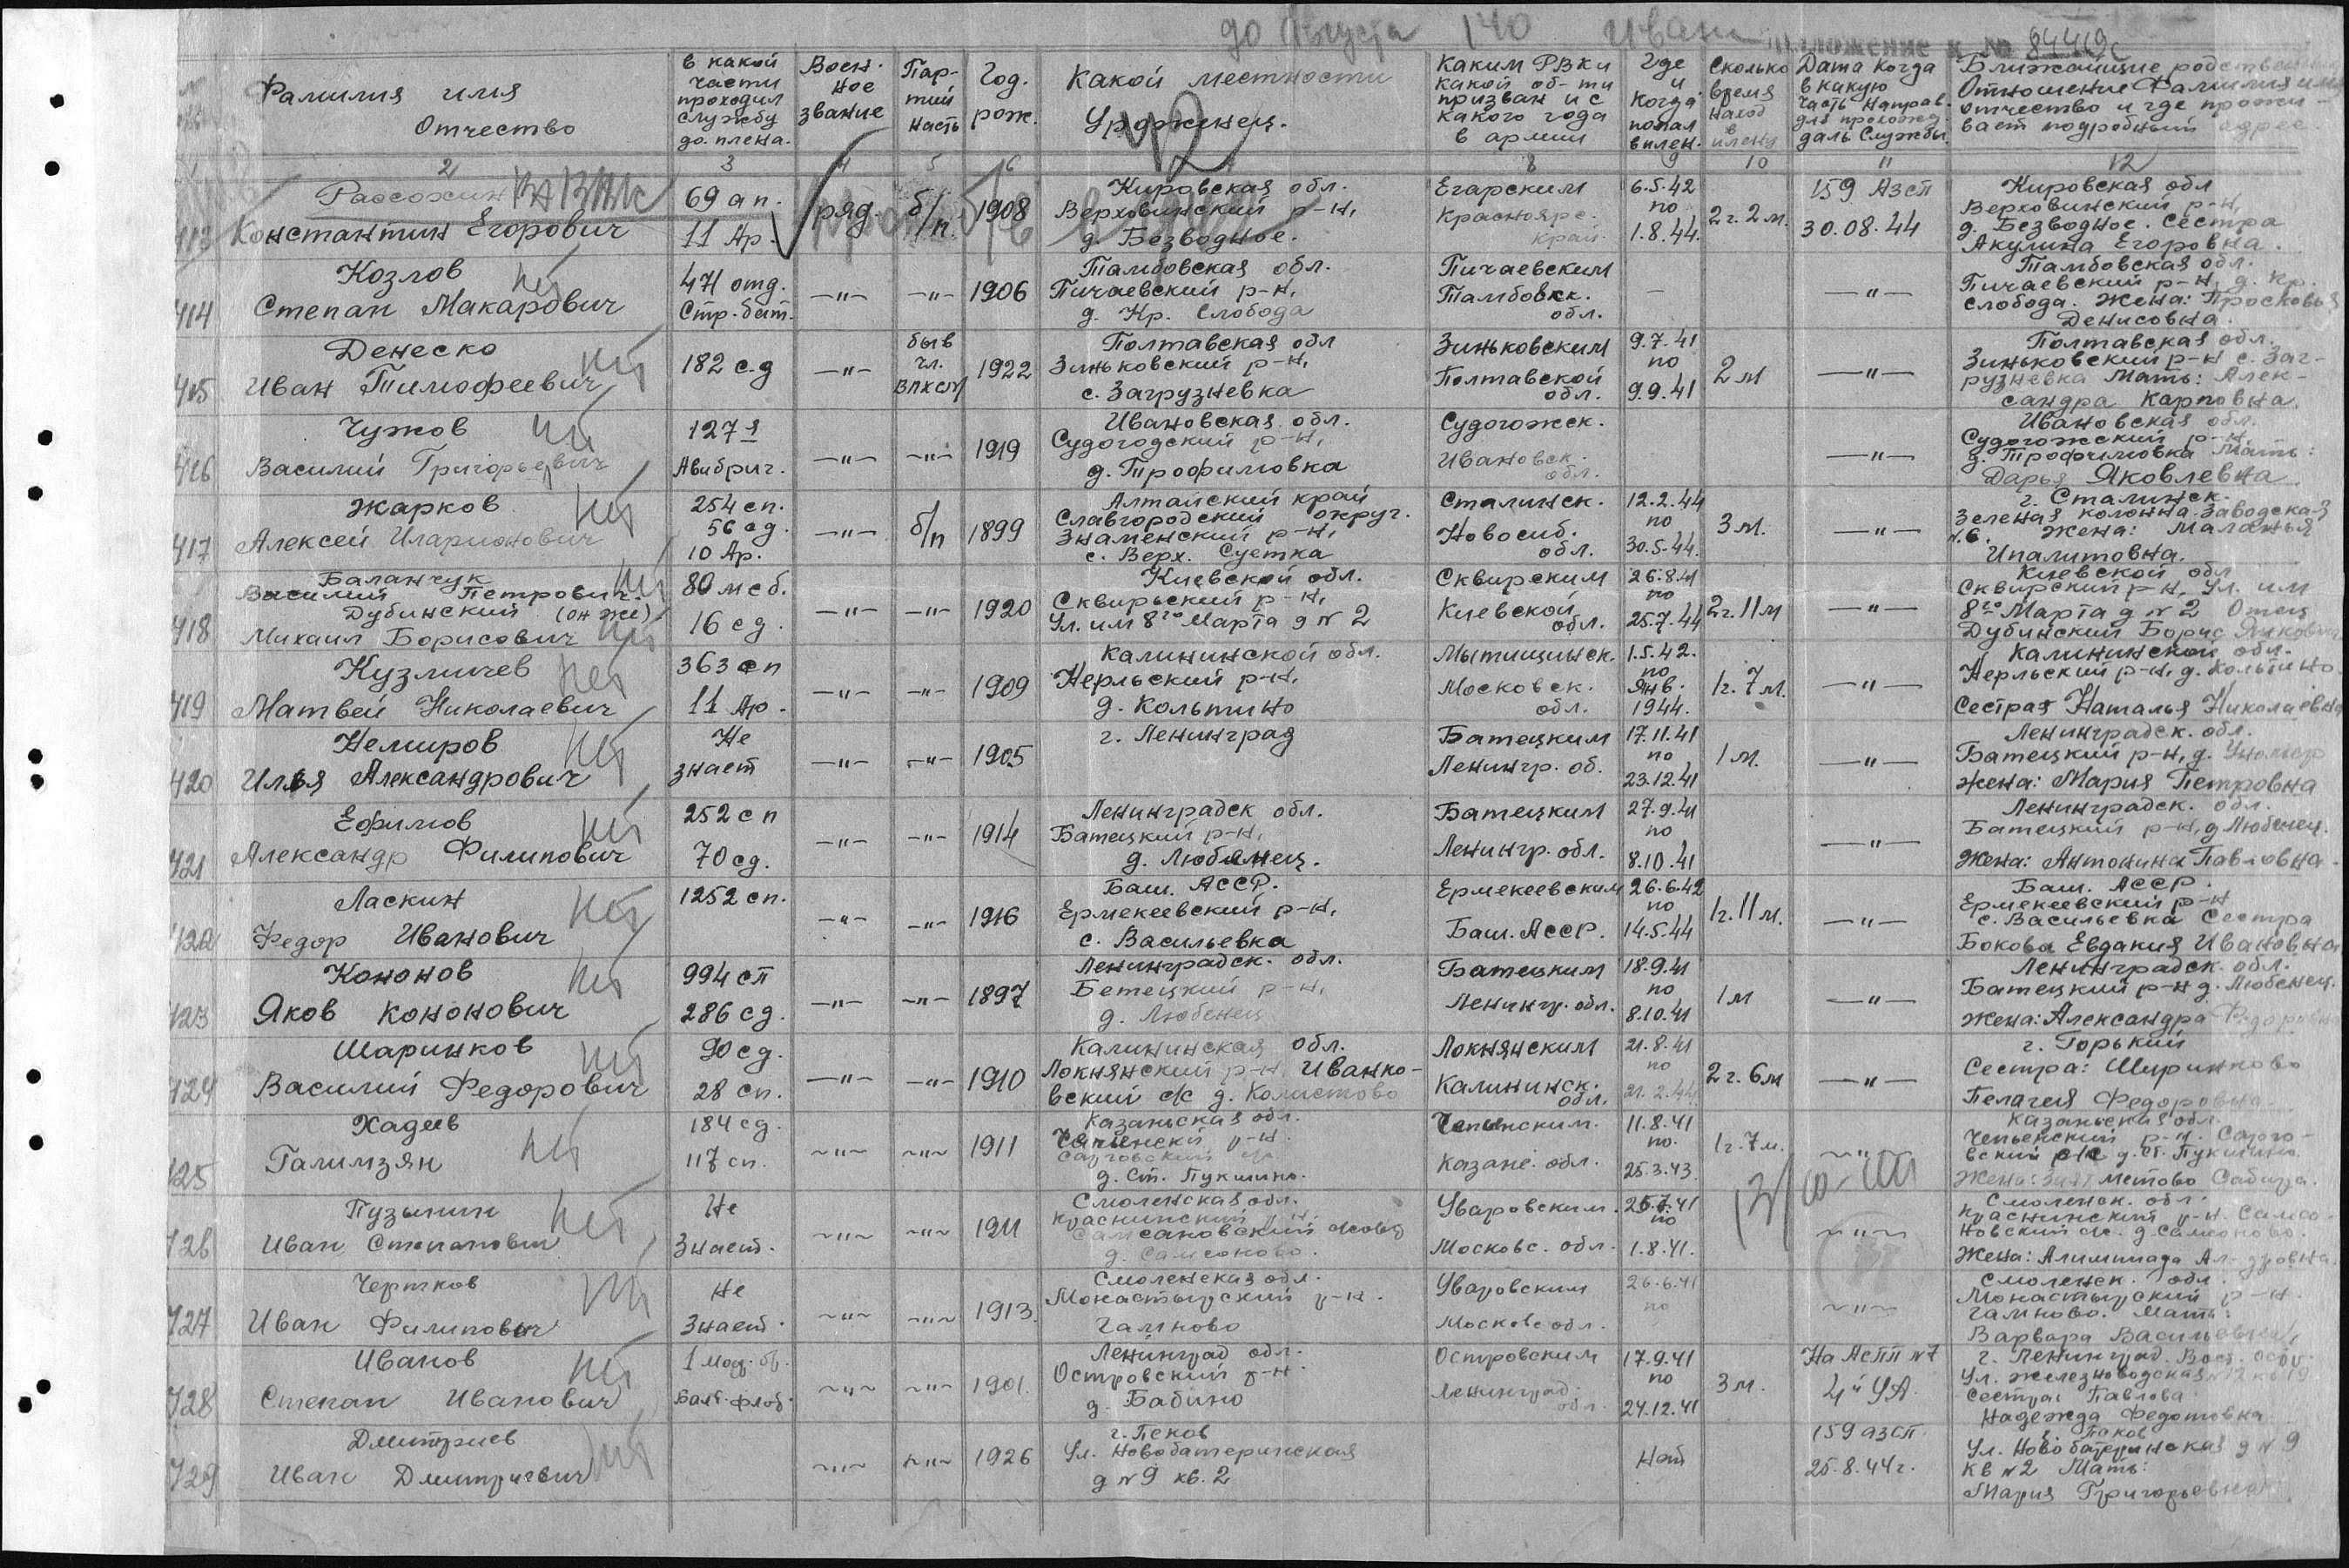 до Августа 140 Иван
Приложение к № 84419с
Фамилия имя
Отчество
в какой
части
проходил
службу
до плена.
Воен-
ное
звание
Пар-
тий
ность
Год.
рож.
Какой местности
Уроженец.
Каким РВК и
какой об-ти
призван и с
какого года
в армии
Где
и
когда
попал
в плен.
Сколько
время
наход
в
плену
Дата когда
в какую
часть направ.
для прохожд.
даль службы.
Ближайшие родствен
Отношение Фамилия имя
отчество и где прожи-
вает подробный адрес.
2 3 4 5 6 8 9 10 11 12
413
Рассохин
Константин Егорович
69 ап.
11 Ар.
ряд.
б/п.
1908
Кировская обл.
Верховинский р-н,
д. Безводное.
Егарским
Красноярс.
край.
6.5.42
по
1.8.44.
2 г. 2 м.
159 Азсп
30.08.44
Кировская обл
Верховинский р-н,
д. Безводное. Сестра
Акулина Егоровна.
414
Козлов
Степан Макарович
нет
471 отд.
Стр. бат.
—"—
—"—
1906
Тамбовская обл.
Пичаевский р-н,
д. Кр. Слобода
Пичаевским
Тамбовск.
обл.
—
—"—
Тамбовская обл.
Пичаевский р-н, д. Кр.
слобода. Жена: Просковья
Денисовна.
415
Денеско
Иван Тимофеевич
нет
182 с.д
—"—
быв
чл.
ВЛКСМ
1922
Полтавская обл
Зиньковский р-н,
с. Загрузневка
Зиньковским
Полтавской
обл.
9.7.41
по
9.9.41
2 м
—"—
Полтавская обл.
Зиньковский р-н с. Заг-
рузневка Мать: Алек-
сандра Карповна.
416
Чужов
Василий Григорьевич
нет
127 я
Авибриг.
—"—
—"—
1919
Ивановская обл.
Судогодский р-н,
д. Трофимовка
Судогожск.
Ивановск.
обл.
—"—
Ивановская обл.
Судогожский р-н.
д. Трофимовка Мать:
Дарья Яковлевна
417
Жарков
Алексей Иларионович
нет
254 сп.
56 сд.
10 Ар.
—"—
б/п
1899
Алтайский край
Славгородский округ.
Знаменский р-н,
с. Верх. Суетка
Сталинск.
Новосиб.
обл.
12.2.44
по
30.5.44.
3 м.
—"—
г. Сталинск.
Зеленая колонна. Заводская
№6. Жена: Маланья
Ипалитовна.
418
Баланчук
Василий Петрович.
Дубинский (он же)
Михаил Борисович
нет
нет
80 мсб.
16 сд.
—"—
—"—
1920
Киевской обл.
Сквирьский р-н,
Ул. им 8го Марта д № 2
Сквирским
Киевской
обл.
26.8.41
по
25.7.44
2 г. 11 м
—"—
Киевской обл
Сквирский р-н, Ул. им
8го Марта д № 2 Отец
Дубинский Борис
419
Кузмичев
Матвей Николаевич
нет
363 сп
11 Ар.
—"—
—"—
1909
Калининской обл.
Нерльский р-н.
д. Кольтино
Мытищинск.
Московск.
обл.
1.5.42.
по
Янв.
1944.
1 г. 7 м.
—"—
Калининской обл.
Нерльский р-н, д. Кольтино
Сестрая Наталья Николаевна
420
Немиров
Илья Александрович
нет
Не
знает
—"—
—"—
1905
г. Ленинград
Батецким
Ленингр. об.
17.11.41
по
23.12.41
1 м.
—"—
Ленинградск. обл.
Батецкий р-н, д.
Жена: Мария Петровна
421
Ефимов
Александр Филипович
нет
252 сп
70 сд.
—"—
—"—
1914
Ленинградск обл.
Батецкий р-н,
д. Любенец.
Батецким
Ленингр. обл.
27.9.41
по
8.10.41
—"—
Ленинградск. обл.
Батецкий р-н, д Любенец.
Жена: Антонина Павловна.
422
Ласкин
Федор Иванович
нет
1252 сп.
—"—
—"—
1916
Баш. АССР.
Ермекеевский р-н,
с. Васильевка
Ермекеевским
Баш. АССР.
26.6.42
по
14.5.44
1 г. 11 м.
—"—
Баш. АССР.
Ермекеевский р-н
с. Васильевка Сестра
Бокова Евдакия Ивановна
423
Кононов
Яков Кононович
нет
994 сп
286 сд.
—"—
—"—
1897
Ленинградск. обл.
Бетецкий р-н,
д. Любенец
Батецким
Ленингр. обл.
18.9.41
по
8.10.41
1 м
—"—
Ленинградск. обл.
Батецкий р-н д. Любенец.
Жена: Александра Федоровна
424
Шаринков
Василий Федорович
нет
90 сд.
28 сп.
—"—
—"—
1910
Калининская обл.
Локнянский р-н, Иванко-
вский с/с д. Колистово
Локнянским
Калининск.
обл.
21.8.41
по
21.2.44
2 г. 6 м
—"—
г. Горький
Сестра: Ширинкова
Пелагея Федоровна
425
Хадиев
Галимзян
нет
184 сд.
117 сп.
—"—
—"—
1911
Казаньская обл.
р-н.
д. Ст. Пукшино.
Чепинским.
Казанс. обл.
11.8.41
по.
25.3.43.
1 г. 7 м.
—"—
Казаньская обл.
Чепьенский р-н.
вский с/с д. Ст. Пукшино.
Жена: Сабира.
426
Пузынин
Иван Степанович
нет
Не
Знает.
—"—
—"—
1911
Смоленская обл.
Краснинский р-н.
Самсановский с/совет
д. Самсоново.
Уваровским.
Московс. обл.
26.7.41
по
1.8.41.
—"—
Смоленск. обл.
Краснинский р-н. Самсо-
новский с/с. д. Самсоново.
Жена: Алимпиада Ал-дровна.
427
Чертков
Иван Филипович
нет
Не
Знает.
—"—
—"—
1913.
Смоленская обл.
Монастырский р-н.
Галиново
Уваровским
Московс обл.
26.6.41
по
—"—
Смоленск. обл.
Монастырский р-н.
Галиново. Мать:
Варвара Васильевна.
428
Иванов
Степан Иванович
нет
1 Мор. бр.
Балт. флот.
—"—
—"—
1901.
Ленинград обл.
Островский р-н
д. Бабино
Островским
Ленинград.
обл.
17.9.41
по
24.12.41
3 м.
На АСПП №7
4й УА.
г. Ленинград. Вас. остр.
Ул. Железноводская №12 кв 19
Сестра: Павлова
Надежда Федотовна
429
Дмитриев
Иван Дмитриевич
нет
—"—
—"—
1926
г. Псков
Ул. Новобатеринская
д №9 кв. 2
Нет
159 азсп.
25.8.44 г.
г. Псков
Ул. Новобатеринская д №9
кв №2 Мать:
Мария Григорьевна